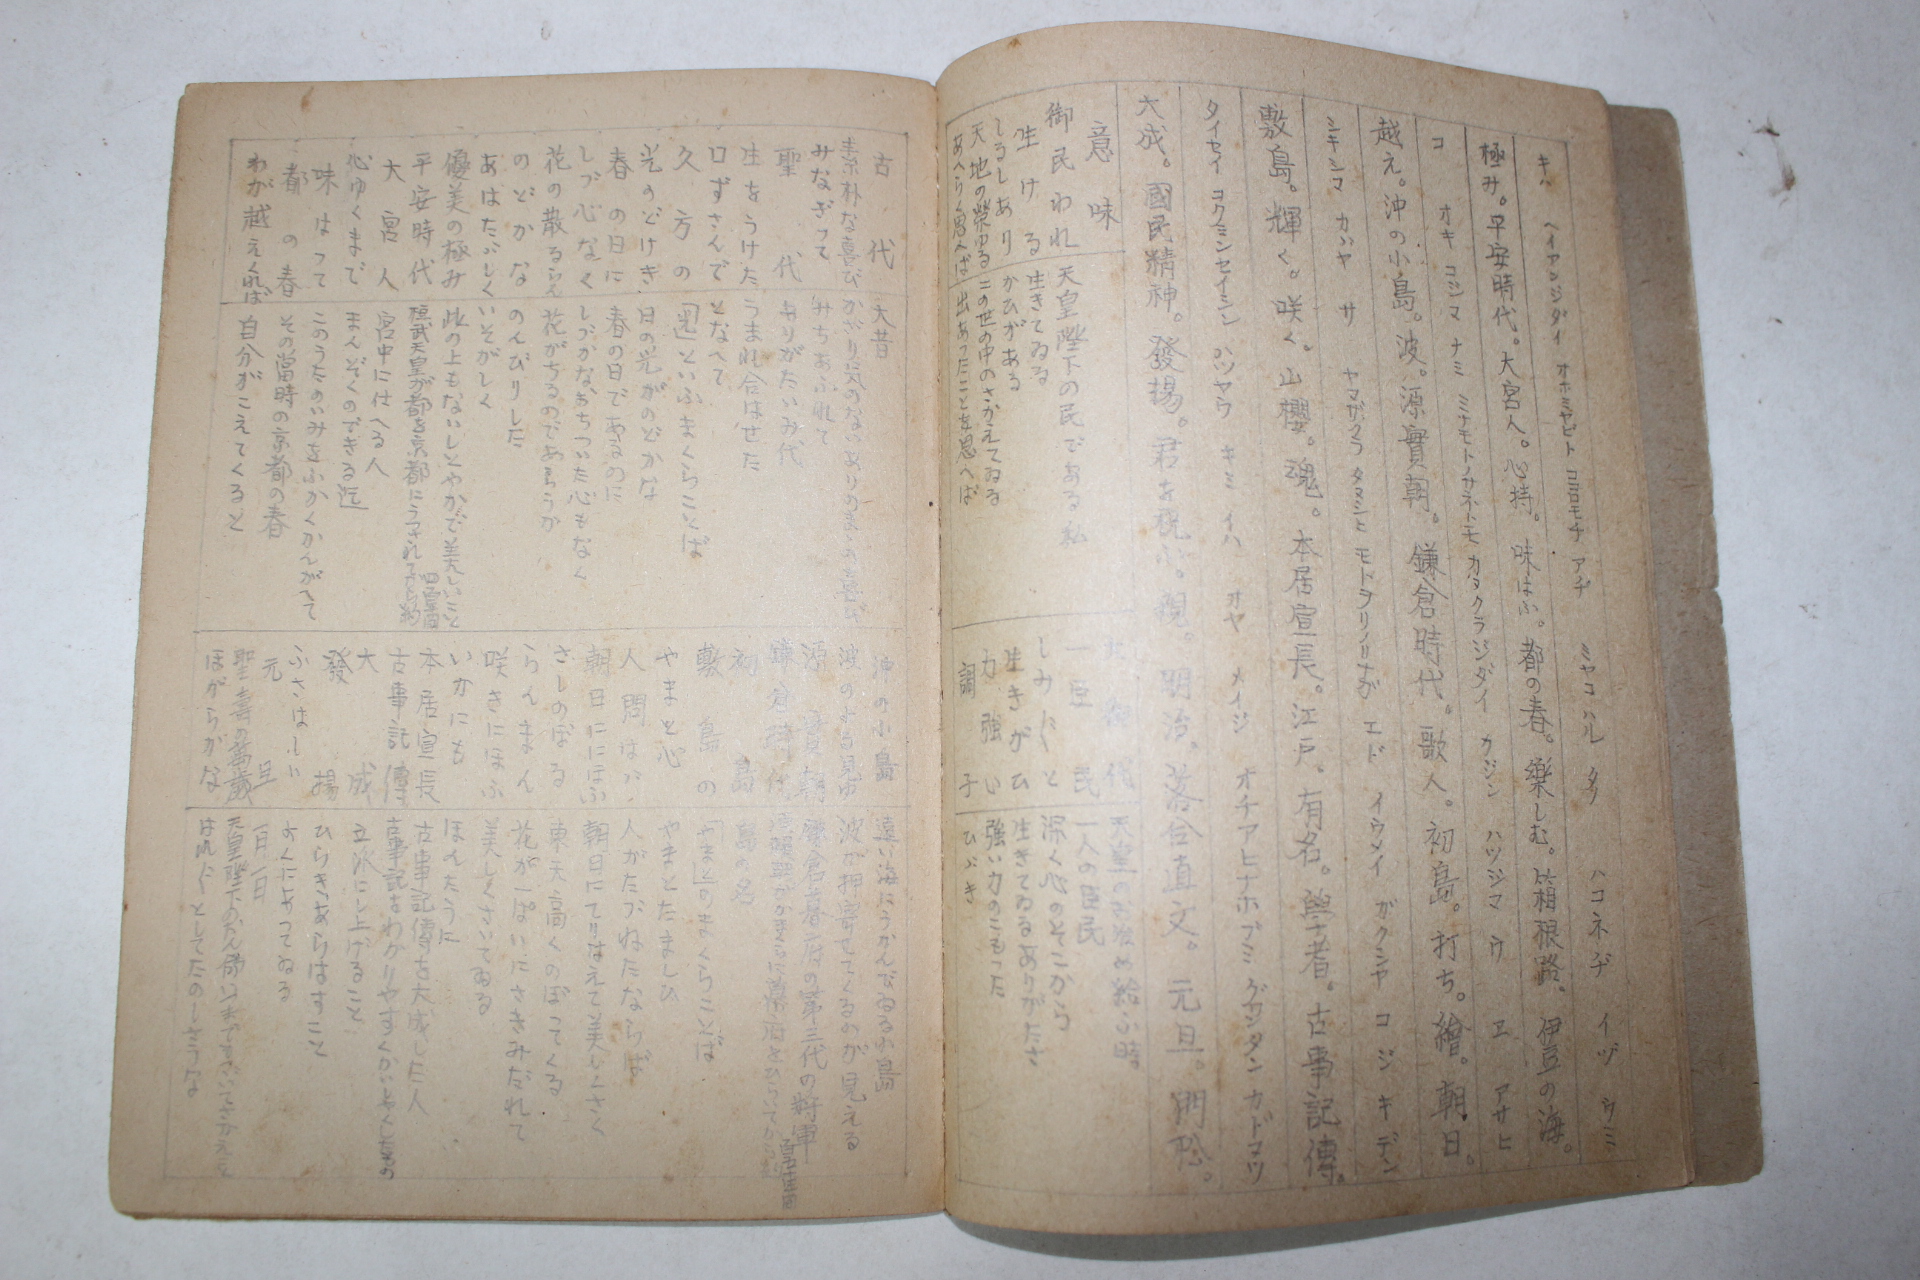 キハ ヘイアンジダイ オホミヤビト コヽロモチ アヂ ミヤコハル タノ ハコネヂ イヅ ウミ
極み。平安時代。大宮人。心持。味はふ。都の春。樂しむ。箱根路。伊豆の海。
コ オキ コジマ ナミ ミナモトノサネトモ カマクラジダイ カジン ハツシマ ウ ヱ アサヒ
越え。沖の小島。波。源實朝。鎌倉時代。歌人。初島。打ち。繪。朝日。
シキシマ カヾヤ サ ヤマザクラ タマシヒ モトヲリノリナガ エド イウメイ ガクシヤ コジキデン
敷島。輝く。咲く。山櫻。魂。本居宣長。江戸。有名。學者。古事記傳。
タイセイ コクミンセイシン ハツヤウ キミ イハ オヤ メイジ オチアヒナホブミ グワンタン カドマツ
大成。國民精神。發揚。君を祝ふ。親。明治。落合直文。元旦。門松。
意味
御民われ 天皇陛下の民である私
生ける 生きてゐる
しるしあり かひがある
天地の榮ゆる この世の中のさかえてゐる
あへらく思へば 出あつたことを思へば
御代 天皇のお治め給ふ時。
一臣民 一人の臣民
しみじみと 深く心のそこから
生きがひ 生きてゐるありがたさ
力強い 強い力のこもつた
調子 ひゞき
古代 大昔
素朴な喜び かざりに気のないありのまゝの喜び
みなぎつて みちあふれて
聖代 ありがたいみ代
生をうけた うまれ合はせた
口ずさんで となへて
久方の 「光」といふまくらことば
光のどけき 日の光がのどかな
春の日に 春の日であるのに
しづ心なく しづかなおちついた心もなく
花の散るらん 花がちるのであらうか
のどかな のんびりした
あはたゞしく いそがしく
優美の極み 此の上もないしとやかで美しいこと
平安時代 桓武天皇が都を京都にうつされて
大宮人 宮中に仕へる人
心ゆくまで まんぞくのできる迄
味はつて このうたのいみをふかくかんがへて
都の春 その當時の京都の春
わが越えくれば 自分がこえてくると
沖の小島 遠い海にうかんでゐる小島
波のよる見ゆ 波が押寄せてくるのが見える
源實朝 鎌倉幕府の第三代の將軍
鎌倉時代
初島 島の名
敷島の 「やまと」のまくらことば
やまと心 やまとたましひ
人問はゞ 人がたづねたならば
朝日ににほふ 朝日にてりはえて美しくさく
さしのぼる 東天高くのぼつてくる
らんまん 花がーぱいにさきみだれて
咲きにほふ 美しくさいてゐる
いかにも ほんたうに
本居宣長 古事記傳を大成した人
古事記傳 古事記をわかりやすくかいせつしたもの
大成 立派にし上げること
發揚 ひらきあらはすこと
ふさはしい よくにあつてゐる
元旦 一月一日
聖壽の萬歳
ほがらかな はればれとしてたのしさうな